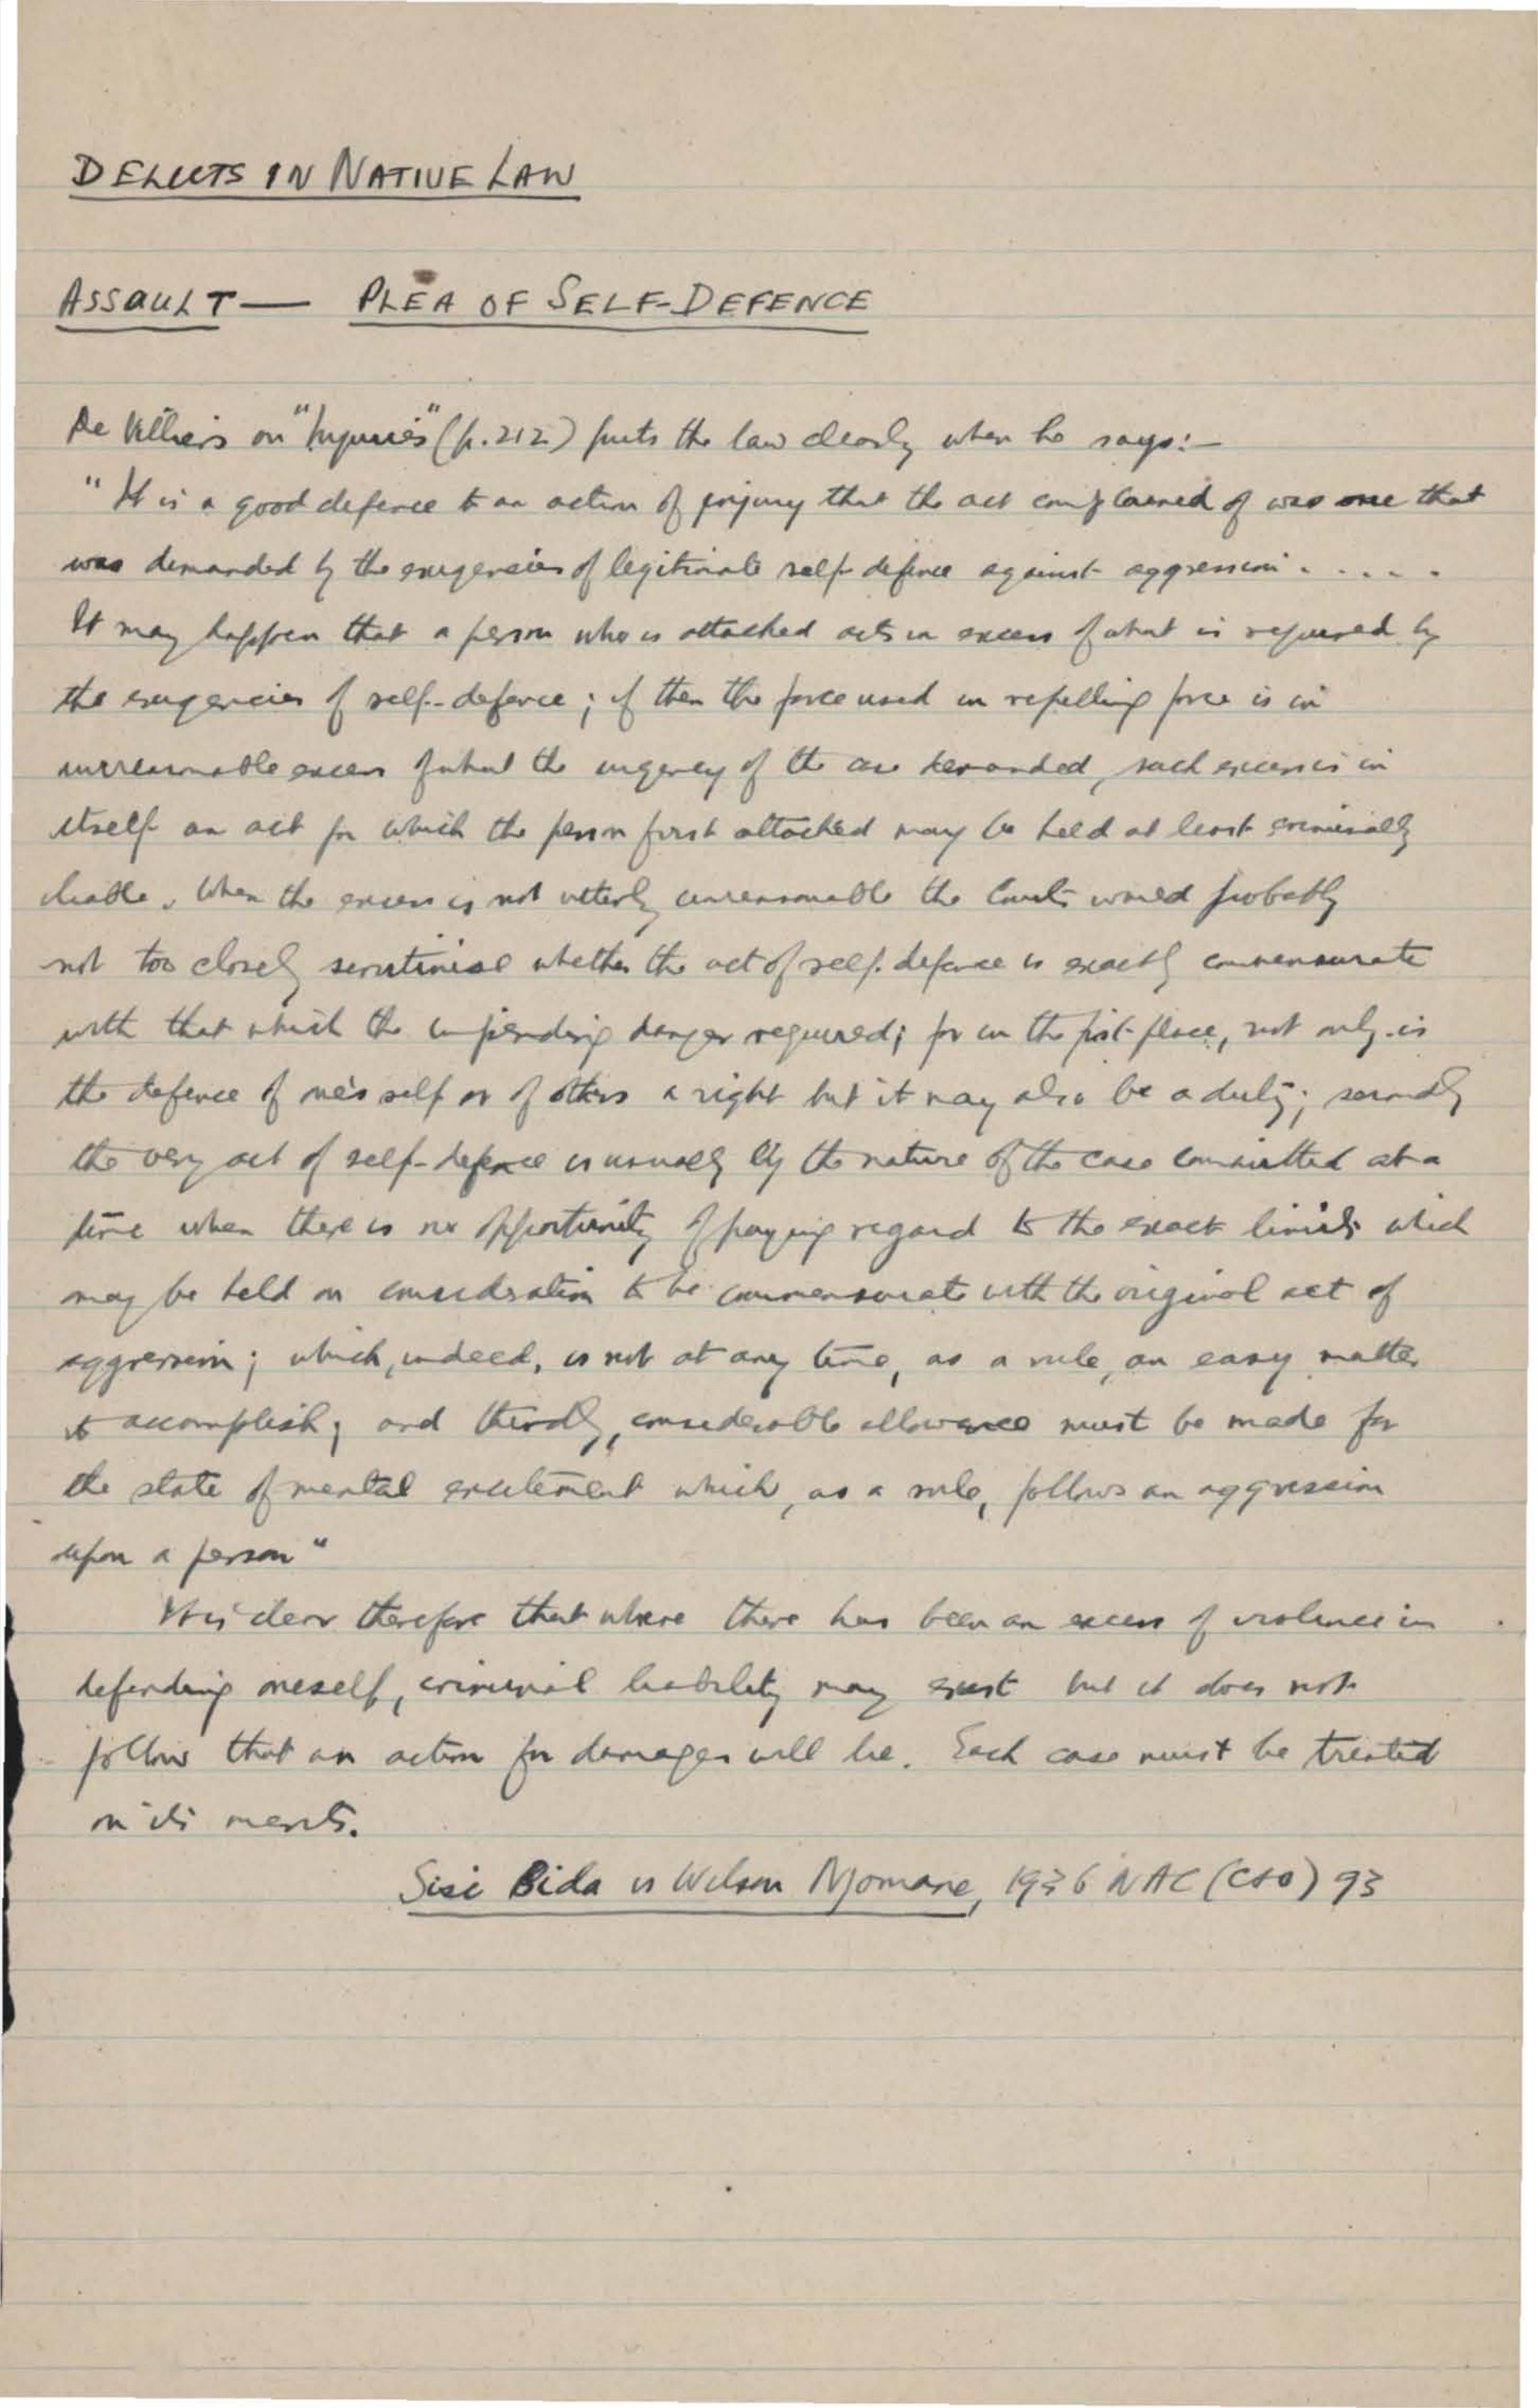 DELICTS IN NATIVE LAW
ASSAULT — PLEA OF SELF-DEFENCE
De Villiers on "Injuries" (p. 212) puts the law clearly when he says:—
"It is a good defence to an action of injury that the act complained of was one that
was demanded by the exigencies of legitimate self-defence against aggression . . . . .
It may happen that a person who is attacked acts in excess of what is required by
the exigencies of self-defence; if then the force used in repelling force is in
unreasonable excess of what the urgency of the case demanded, such excess is in
itself an act for which the person first attacked may be held at least criminally
liable. When the excess is not utterly unreasonable the Courts would probably
not too closely scrutinise whether the act of self-defence is exactly commensurate
with that which the impending danger required; for in the first place, not only is
the defence of one's self or of others a right but it may also be a duty; secondly
the very act of self-defence is usually by the nature of the case committed at a
time when there is no opportunity of paying regard to the exact limits which
may be held on consideration to be commensurate with the original act of
aggression; which, indeed, is not at any time, as a rule, an easy matter
to accomplish; and thirdly, considerable allowance must be made for
the state of mental excitement which, as a rule, follows an aggression
upon a person"
It is clear therefore that where there has been an excess of violence in
defending oneself, criminal liability may exist but it does not
follow that an action for damages will lie. Each case must be treated
on its merits.
Sisi Bida vs Wilson Njomane, 1936 NAC (C&O) 93